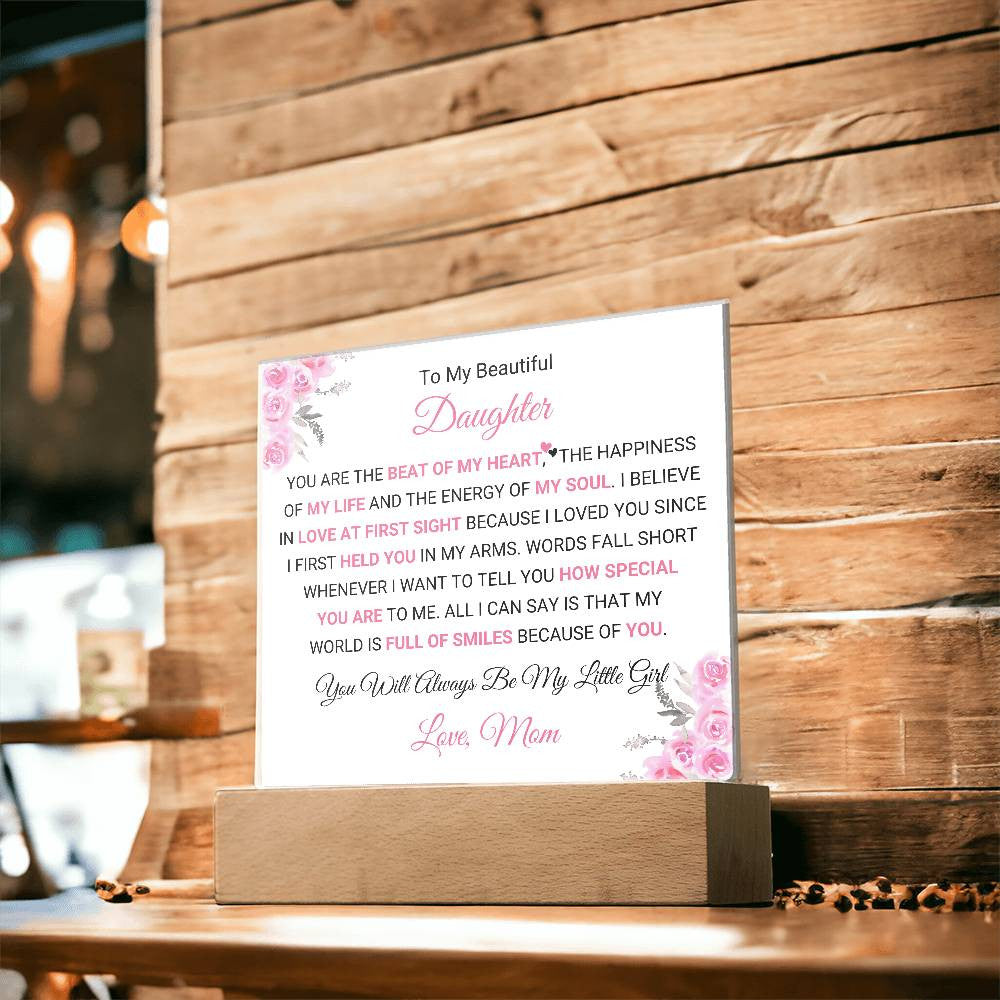 To My Beautiful
Daughter
YOU ARE THE BEAT OF MY HEART, THE HAPPINESS
OF MY LIFE AND THE ENERGY OF MY SOUL. I BELIEVE
IN LOVE AT FIRST SIGHT BECAUSE I LOVED YOU SINCE
I FIRST HELD YOU IN MY ARMS. WORDS FALL SHORT
WHENEVER I WANT TO TELL YOU HOW SPECIAL
YOU ARE TO ME. ALL I CAN SAY IS THAT MY
WORLD IS FULL OF SMILES BECAUSE OF YOU.
You Will Always Be My Little Girl
Love, Mom